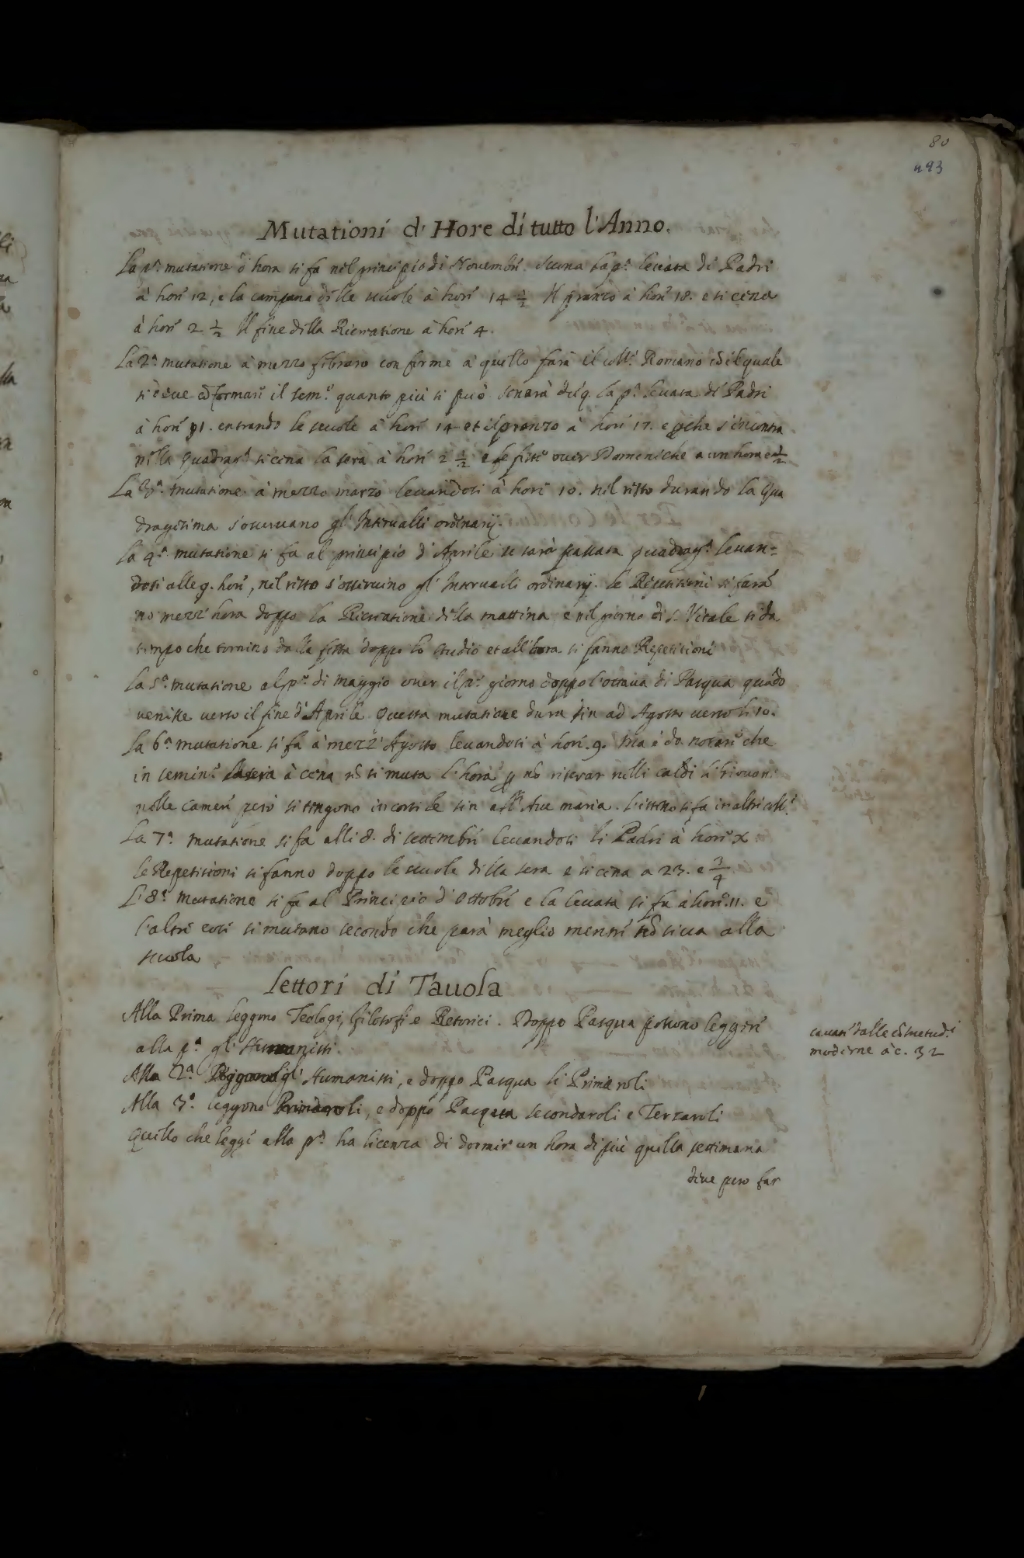 80
493
Mutationi d'Hore di tutto l'Anno.
La pª mutatione d'hora si fa nel principio di Novembre. suona la pª levata di Padri
à hore 12, e la campana delle scuole à hore 14 ½ Il pranzo à hore 18. e si cena
à hore 2 ½ Il fine della Ricreatione à hore 4.
La 2ª mutatione à mezzo febraro conforme à quello farà il Collº Romano cõ il quale
si deve cõformare il semº quanto più si può sonerà la pª levata di Padri
à hore 11. entrando le scuole à hore 14 et il pranzo à hore 17. e
nella quadragª si cena la sera à hore 2 ½ e le feste over Domeniche a un hora e ½
La 3ª mutatione à mezzo marzo levandosi à hore 10. nel resto durando la Qua
dragesima s'osservano gl'Intervalli ordinarij.
La 4ª mutatione si fa al principio d'Aprile se sarà passata quadragª levan-
dosi alle 9. hore, nel resto s'osservino gl'Intervalli ordinarij. le Repetitioni si farã
no mezz'hora doppo la Ricreatione della mattina e nel giorno di S. Vitale si da
tempo che tornino dalla festa doppo lo studio et all'hora si fanno Repetitioni
La 5ª mutatione al pº di maggio over il pº giorno doppo l'ottava di Pasqua quãdo
venisse verso il fine d'Aprile. Questa mutatione dura sin ad Agosto verso li 10.
La 6ª mutatione si fa à mezz'Agosto levandosi à hore 9. Ma è da notare che
in semº la sera à cena nõ si muta l'hora p nõ riserrar nelli caldi li giovani
nelle camere però si tengono in cortile sin all'Ave maria. L'istesso si fa in altri collº
La 7ª mutatione si fa alli 8. di settembre levandosi li Padri à hore X
le Repetitioni si fanno doppo le scuole della sera e si cena a 23. e ¾
L'8ª mutatione si fa al Principio d'Octobre e la levata si fa à hore 11. e
l'altre cose si mutano secondo che parà meglio mentre nõ si va alla
scuola
Lettori di Tavola
Alla Prima leggono Teologi, filosofi e Retorici. Doppo Pasqua possono leggere
alla pª gl'Humanisti.
Alla 2ª leggono gl'Humanisti, e doppo Pasqua li Primaroli
Alla 3ª leggono Primaroli, e doppo Pasqua secondaroli e Terzaroli
Quello che legge alla pª ha licenza di dormire un hora di più quella settimana
deve pero far
cavate dalle Cõsuetud.i
moderne à c. 32